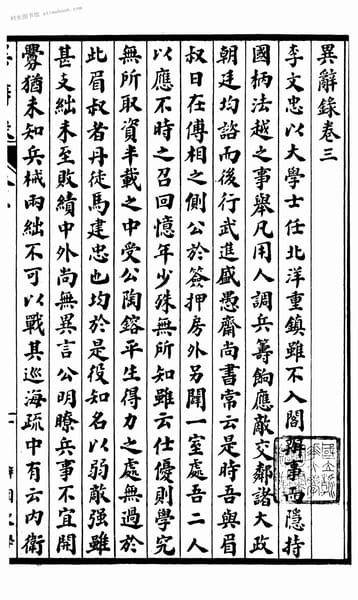 異辭錄卷三
李文忠以大學士任北洋重鎮雖不入閣辦事而隱持
國柄法越之事舉凡用人調兵籌餉應敵交鄰諸大政
朝廷均諮而後行武進盛愚齋尚書常云是時吾與眉
叔日在傅相之側公於簽押房外另開一室處吾二人
以應不時之召回憶年少殊無所知雖云仕優則學究
無所取資半載之中受公陶鎔平生得力之處無過於
此眉叔者丹徒馬建忠也均於是役知名以弱敵強雖
甚支絀未至敗績中外尚無異言公明瞭兵事不宜開
釁猶未知兵械兩絀不可以戰其巡海疏中有云內衛